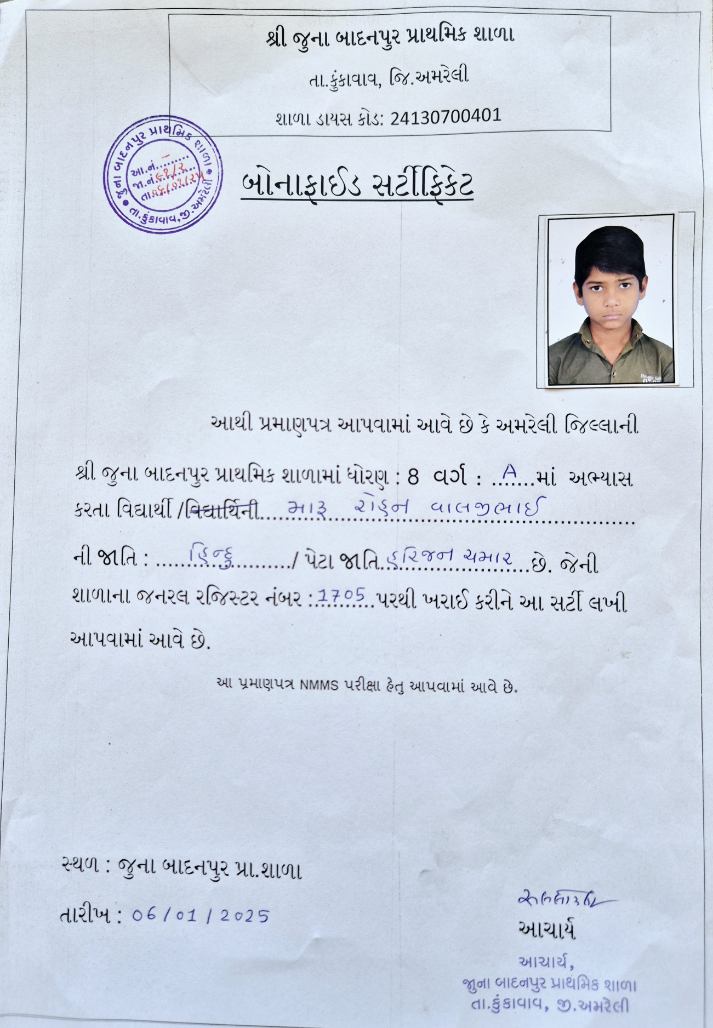 શ્રી જુના બાદનપુર પ્રાથમિક શાળા
તા.કુંકાવાવ, જિ.અમરેલી
શાળા ડાયસ કોડ: 24130700401
જુના બાદનપુર પ્રાથમિક શાળા
આ.નં.
જા.નં.
તા.
તા.કુંકાવાવ,જી.અમરેલી
બોનાફાઈડ સર્ટીફિકેટ
આથી પ્રમાણપત્ર આપવામાં આવે છે કે અમરેલી જિલ્લાની
શ્રી જુના બાદનપુર પ્રાથમિક શાળામાં ધોરણ : 8 વર્ગ : ......A...માં અભ્યાસ
કરતા વિદ્યાર્થી /વિદ્યાર્થિની.... મારૂ રોહન વાલજીભાઈ
ની જાતિ : હિન્દુ / પેટા જાતિ..હરિજન ચમાર...છે. જેની
શાળાના જનરલ રજિસ્ટર નંબર :.1705..પરથી ખરાઈ કરીને આ સર્ટી લખી
આપવામાં આવે છે.
આ પ્રમાણપત્ર NMMS પરીક્ષા હેતુ આપવામાં આવે છે.
સ્થળ : જુના બાદનપુર પ્રા.શાળા
તારીખ : 06/01/2025
આચાર્ય
આચાર્ય,
જુના બાદનપુર પ્રાથમિક શાળા
તા.કુંકાવાવ, જી.અમરેલી